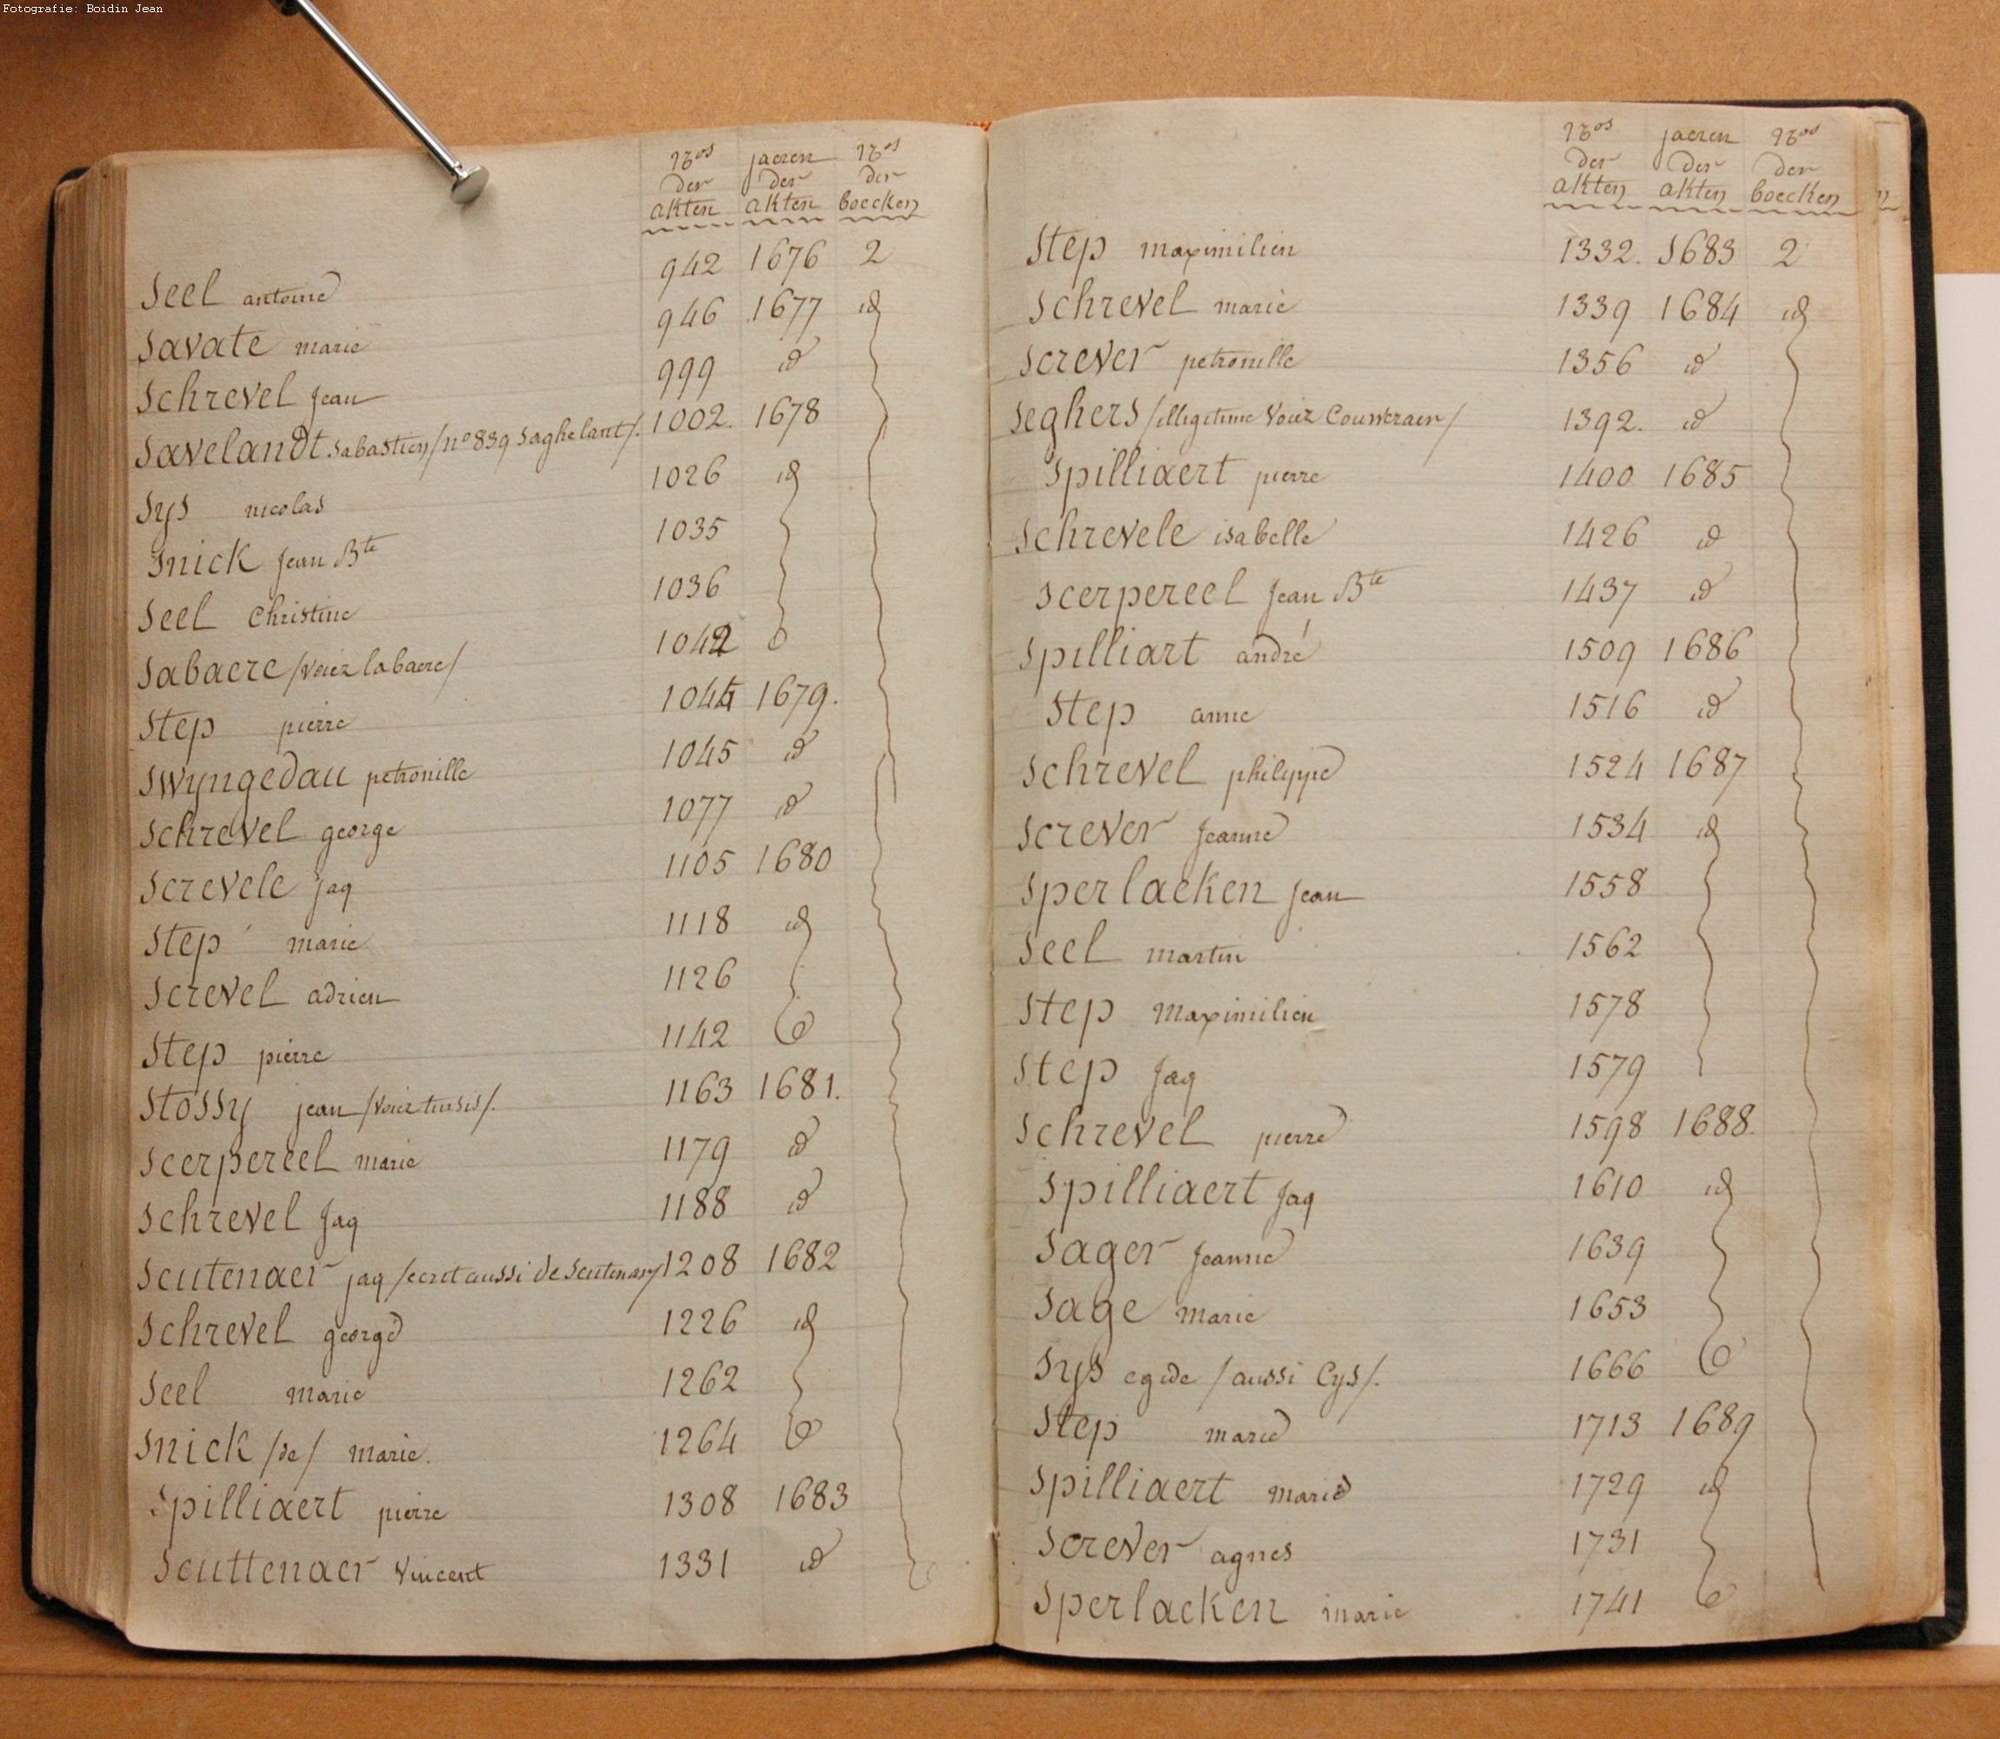 Fotografie: Boidin Jean
Nos jaeren Nos
der der der
akten akten boecken
Seel antoine 942 1676 2
Savate marie 946 1677 id
Schrevel Jean 999 id
Savelandt Sabastien /no 839 Saghelant/. 1002. 1678
Sys nicolas 1026 id
Snick Jean Bte 1035
Seel Christine 1036
Sabaere /voiez labaere/ 1042
Step pierre 1044 1679.
Swyngedau petronille 1045 id
Schrevel george 1077 id
Screvele Jaq 1105 1680
Step marie 1118 id
Screvel adrien 1126
Step pierre 1142
Stossy jean /voiez tussis/. 1163 1681.
Scerpereel marie 1179 id
Schrevel Jaq 1188 id
Scutenaer jaq /ecret aussi de Scutenary 1208 1682
Schrevel george 1226 id
Seel marie 1262
Snick /de/ marie. 1264
Spilliaert pierre 1308 1683
Scuttenaer Vincent 1331 id
Nos jaeren Nos
der der der
akten akten boecken
Step maximilien 1332. 1683 2
Schrevel marie 1339 1684 id
Screver petronille 1356 id
Seghers /illigitime Voiez Couwerain/ 1392. id
Spilliaert pierre 1400 1685
Schrevele isabelle 1426 id
Scerpereel Jean Bte 1437 id
Spilliart andré 1509 1686
Step anne 1516 id
Schrevel philippe 1524 1687
Screver Jeanne 1534 id
Sperlaeken Jean 1558
Seel martin 1562
Step Maximilien 1578
Step Jaq 1579
Schrevel pierre 1598 1688.
Spilliaert Jaq 1610 id
Sager Jeanne 1639
Sage Marie 1653
Sys egide /aussi Cys/. 1666
Step marie 1713 1689
Spilliaert Marie 1729 id
Screver agnes 1731
Sperlaeken marie 1741